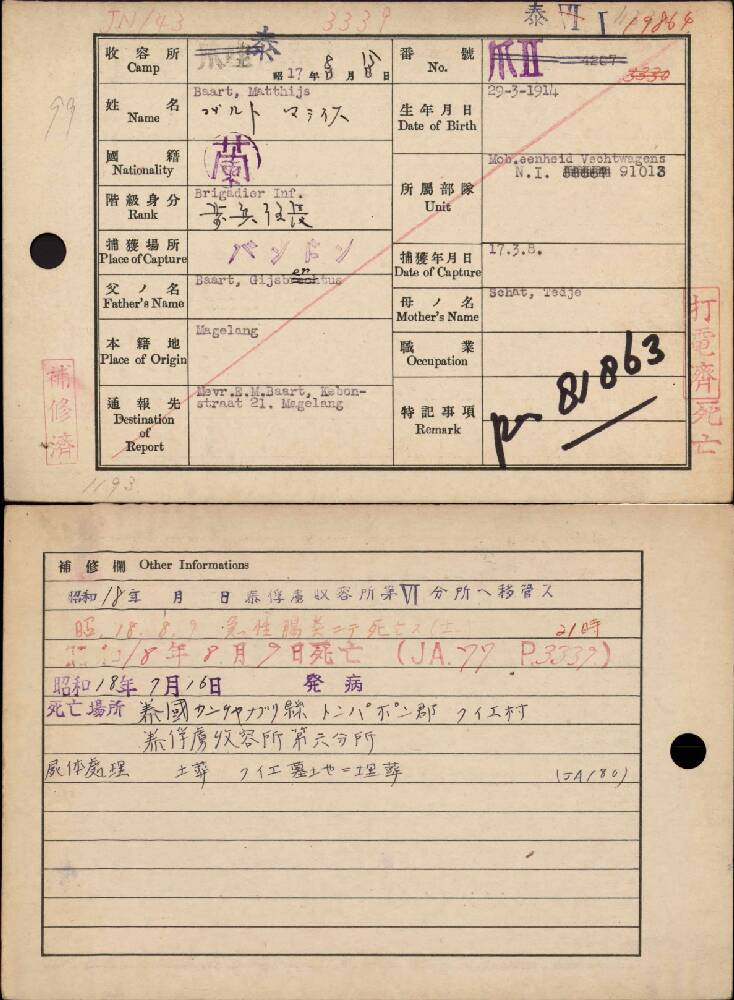 JN/43 3339 泰 VI I 19864
收容所 Camp 泰 昭17年8月15日 番號 No. 爪II 4207 3330
99
姓名 Name Baart, Matthijs
バルト マライス
生年月日 Date of Birth 29-3-1914
國籍 Nationality 蘭
所屬部隊 Unit Mob.eenheid Vechtwagens
N.I. 91013
階級身分 Rank Brigadier Inf.
捕獲場所 Place of Capture バンドン
捕獲年月日 Date of Capture 17.3.8.
父ノ名 Father's Name Baart, Gijsbrechtus
母ノ名 Mother's Name Schat, Tedje
本籍地 Place of Origin Magelang
職業 Occupation
通報先 Destination of Report Mevr.E.M.Baart, Kebon-
straat 21. Magelang
特記事項 Remark
81863
補修濟
打電濟 死亡
1193
補修欄 Other Informations
昭和18年 月 日 泰俘虜收容所第VI分所ヘ移管ス
昭.18.8.9 急性腸炎ニテ死亡ス 21時
18年8月9日死亡 (JA.77 P.3339)
昭和18年7月16日 発病
死亡場所 泰國カンチャナブリ縣 トンパポン郡 クイエ村
泰俘虜收容所第六分所
屍体處理 土葬 クイエ墓地ニ埋葬 (JA180)